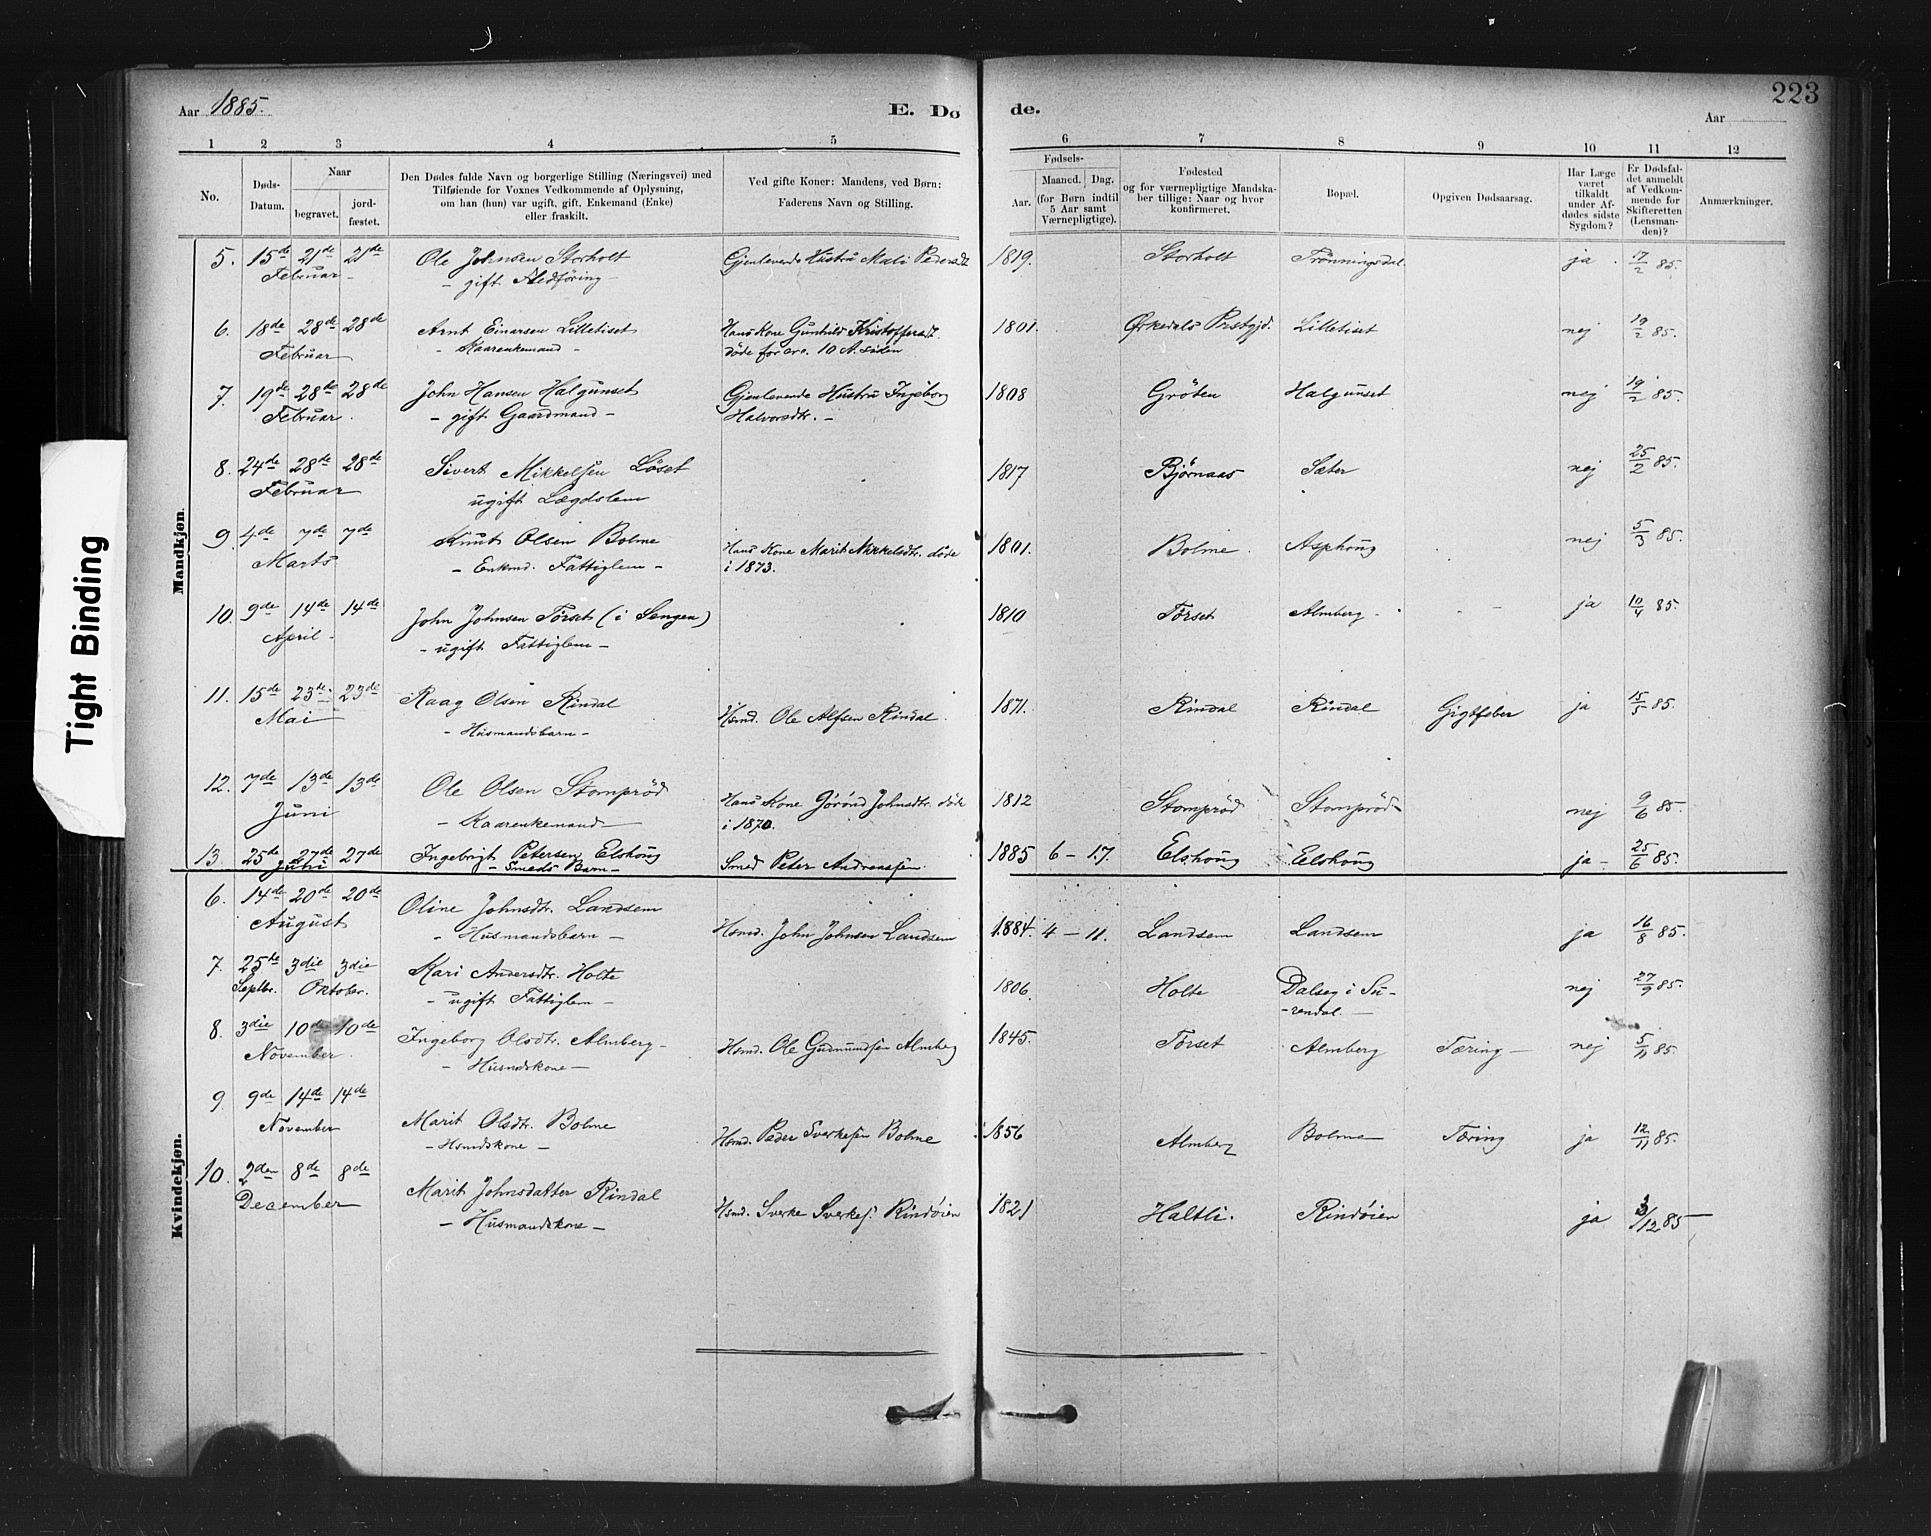 223
Aar 1885.
E. Dø de.
Aar
1 2 3 4 5 6 7 8 9 10 11 12
No.
Døds-Datum.
Naar
begravet.
jord-fæstet.
Den Dødes fulde Navn og borgerlige Stilling (Næringsvei) med
Tilføiende for Voxnes Vedkommende af Oplysning,
om han (hun) var ugift, gift, Enkemand (Enke)
eller fraskilt.
Ved gifte Koner: Mandens, ved Børn:
Faderens Navn og Stilling.
Fødsels-
Aar.
Maaned. Dag.
(for Børn indtil
5 Aar samt
Værnepligtige).
Fødested
og for værnepligtige Mandska-
ber tillige: Naar og hvor
konfirmeret.
Bopæl.
Opgiven Dødsaarsag.
Har Læge
været
tilkaldt
under Af-
dødes sidste
Sygdom?
Er Dødsfal-
det anmeldt
af Vedkom-
mende for
Skifteretten
(Lensman-
den)?
Anmærkninger.
Mandkjøn.
5. 15de 21de 21de Ole Johnsen Storholt Gjenlevende Hustru Mali Pedersdt 1819. Storholt Trönningsdal. ja. 17/2 85.
Februar - - gift Aledföring -
6. 18de 28de 28de Arnt Einarsen Lilletiset Hans Kone Gunhild Kristoffersdt. 1801. Ørkedals Prstgjd. Lilletiset nej 19/2 85.
Februar - Kaarenkemand - döde for cr. 10 A. siden
7. 19de 28de 28de John Hansen Halgunset Gjenlevende Hustru Ingeborg 1808 Gröten Halgunset nej 19/2 85.
Februar. - gift Gaardmand - Halvorsdtr. -
8. 24de 28de 28de Sivert Mikkelsen Löset 1817 Bjørnaas Sæter nej 25/2 85.
Februar ugift Lægdslem
9. 4de 7de 7de Knut Olsen Bolme Hans Kone Marit Mikkelsdtr. döde 1801. Bolme. Asphoug nej 5/3 85.
Marts - Enkmd. Fattiglem - i 1873.
10. 9de 14de 14de John Johnsen Törset (i Sengen) 1810 Törset Almberg - ja 10/4 85.
April - - ugift Fattiglem -
11. 15de 23de 23de Raag Olsen Rindal Hsmd. Ole Alfsen Rindal. 1871. Rindal Rindal Gigtfeber ja 15/5 85.
Mai - Husmandsbarn -
12. 7de 13de 13de Ole Olsen Stompröd Hans Kone Görönd Johnsdtr. döde 1812 Stompröd Stompröd nej 9/6 85-
Juni - Kaarenkemand - i 1870.
13. 25de 27de 27de Ingebrigt Petersen Elshoug Smed Peter Andreassen 1885 6 - 17. Elshoug Elshoug ja- 25/6 85.
Juni - Smeds Barn -
Kvindekjøn.
6. 14de 20de 20de Oline Johnsdtr. Landsem Hsmd. John Johnsen Landsem 1884. 4 - 11. Landsem Landsem ja 16/8 85.
August - Husmandsbarn -
7. 25de 3die 3die Kari Andersdtr. Holte 1806. Holte Dalseg i Su- nej 27/9 85.
Septbr. Oktober. - ugift Fattiglem - -rendal. -
8. 3die 10de 10de Ingeborg Olsdtr. Almberg- Hsmd. Ole Gudmundsen Almberg 1845. Törset Almberg Tæring - nej 5/11 85.
November. - Husmdskone -
9. 9de 14de 14de Marit Olsdtr. Bolme Hsmd. Peder Sverkesen Bolme 1856 Almberg Bolme Tæring ja 12/11 85.
November - Hsmdskone -
10. 2den 8de 8de Marit Johnsdatter Rindal Hsmd. Sverke Sverkes. Rindöien 1821 Haltli. Rindöien ja 3/12 85-
December - Husmandskone -
Tight Binding